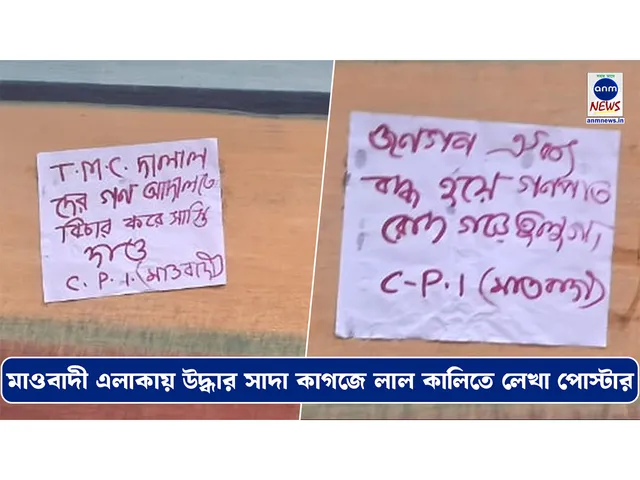 T.M.C. দালাল
দের গন আদালতে
বিচার করে সাস্তি
দাও
C.P.I. (মাওবাদী)
জনগন ঐক্য
বদ্ধ হয়ে গনপ্রতি
রোধ গড়ে তুলুন।
C-P.I (মাওবাদী)
সবার আগে
anm
NEWS
anmnews.in
মাওবাদী এলাকায় উদ্ধার সাদা কাগজে লাল কালিতে লেখা পোস্টার